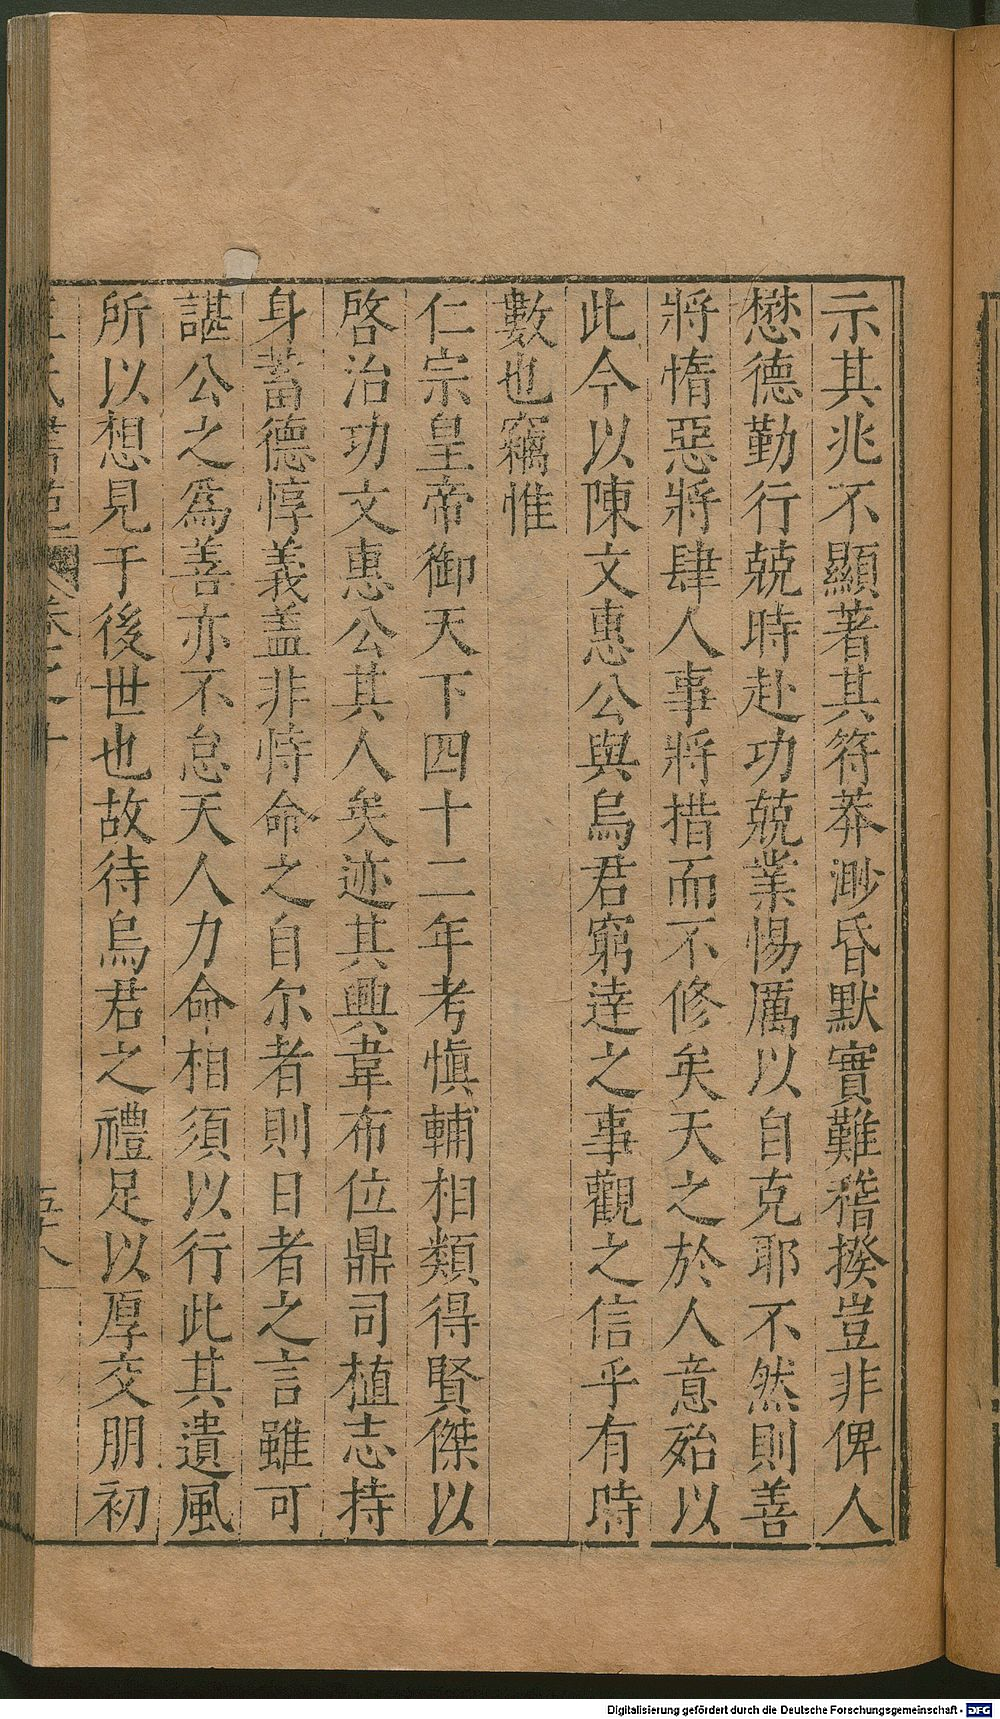 示其兆不顯著其符莽渺昏默實難稽揆豈非俾人
懋德勤行兢時赴功兢業惕厲以自克耶不然則善
將惰惡將肆人事將措而不修矣天之於人意殆以
此今以陳文惠公與烏君窮達之事觀之信乎有時
數也竊惟
仁宗皇帝御天下四十二年考慎輔相類得賢傑以
啓治功文惠公其人矣迹其興韋布位鼎司植志持
身蓄德惇義盖非恃命之自尔者則日者之言雖可
諶公之爲善亦不怠天人力命相須以行此其遺風
所以想見于後世也故待烏君之禮足以厚交朋初
五十八
Digitalisierung gefördert durch die Deutsche Forschungsgemeinschaft - DFG